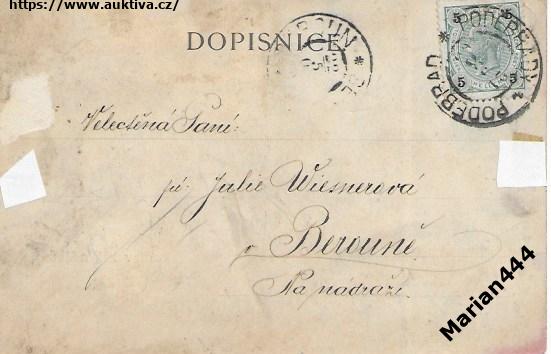 https://www.auktiva.cz/
DOPISNICE
5 5
5 5
PODĚBRADY * PODĚBRAD *
Velectěná Paní:
pí: Julie Wiesnerová
v Berouně
Na nádraží.
Marian444